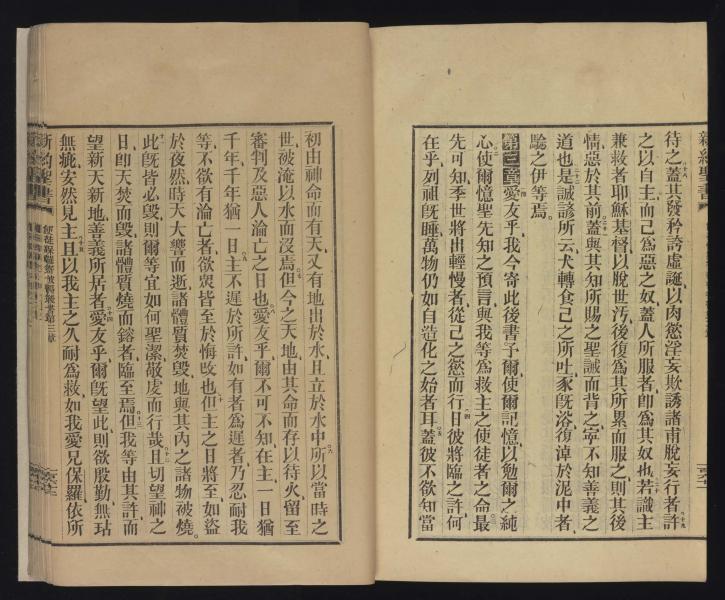 新約聖書
待之蓋其發矜誇虛誕以肉慾淫妄欺誘諸甫脫妄行者許
之以自主而己爲惡之奴蓋人所服者卽爲其奴也若識主
兼救者耶穌基督以脫世汚後復爲其所累而服之則其後
情惡於其前蓋與其知所賜之聖誡而背之寧不知善義之
道也是誠諺所云犬轉食己之所吐豕旣浴復淖於泥中者
驗之伊等焉
第三章愛友乎我今寄此後書予爾使爾記憶以勉爾之純
心使爾憶聖先知之預言與我等爲救主之使徒者之命最
先可知季世將出輕慢者從己之慾而行曰彼將臨之許何
在乎列祖旣睡萬物仍如自造化之始者耳蓋彼不欲知當
初由神命而有天又有地出於水且立於水中所以當時之
世被淹以水而沒焉但今之天地由其命而存以待火留至
審判及惡人淪亡之日也愛友乎爾不可不知在主一日猶
千年千年猶一日主不遲於所許如有者爲遲者乃忍耐我
等不欲有淪亡者欲與皆至於悔改也但主之日將至如盜
於夜然時天大響而逝諸體質焚毀地與其內之諸物被燒
此旣皆必毀則爾等宜如何聖潔敬虔而行哉且切望神之
日卽天焚而毀諸體質燒而鎔者臨至焉但我等由其許而
望新天新地善義所居者愛友乎爾旣望此則欲殷勤無玷
無疵安然見主且以我主之久耐爲救如我愛兄保羅依所
新約聖書